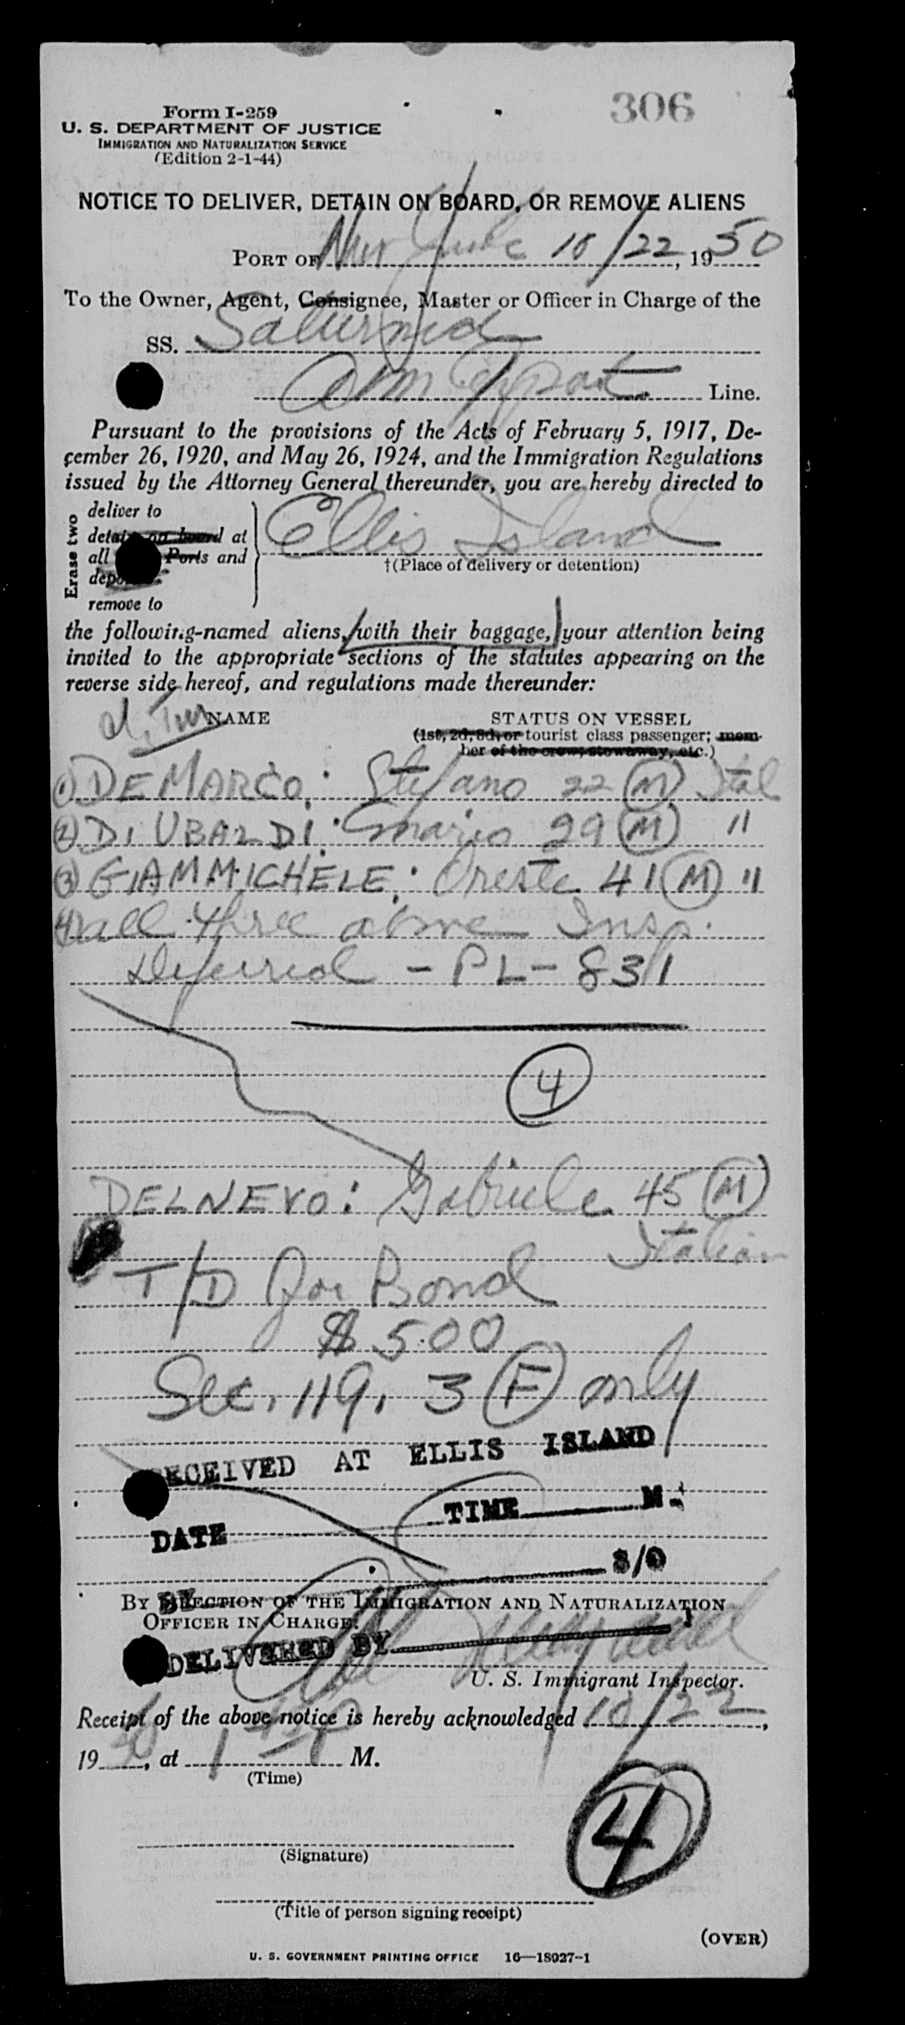 306
Form I-259
U. S. DEPARTMENT OF JUSTICE
IMMIGRATION AND NATURALIZATION SERVICE
(Edition 2-1-44)
NOTICE TO DELIVER, DETAIN ON BOARD, OR REMOVE ALIENS
PORT OF New York 10/22, 1950
To the Owner, Agent, Consignee, Master or Officer in Charge of the
SS. Saturnia
Am Export Line.
Pursuant to the provisions of the Acts of February 5, 1917, De-
cember 26, 1920, and May 26, 1924, and the Immigration Regulations
issued by the Attorney General thereunder, you are hereby directed to
Erase two
deliver to
detain on board at
all Ports and
remove to
Ellis Island
†(Place of delivery or detention)
the following-named aliens, with their baggage, your attention being
invited to the appropriate sections of the statutes appearing on the
reverse side hereof, and regulations made thereunder:
NAME
STATUS ON VESSEL
(1st, 2d, 3d, or tourist class passenger; mem-
ber of the crew, stowaway, etc.)
① DEMARCO: Stefano 22 Ⓜ Ital
② DI UBALDI: Mario 29 Ⓜ "
③ GIAMMICHELE: Oreste 41 Ⓜ "
all three above Insp.
Deferred - PL-831
④
DELNEVO: Gabriele 45 Ⓜ
Italian
T/D for Bond
$500
Sec. 119. 3 Ⓕ only
RECEIVED AT ELLIS ISLAND
DATE TIME M.
S/O
BY
BY DIRECTION OF THE IMMIGRATION AND NATURALIZATION
OFFICER IN CHARGE.
DELIVERED BY
U. S. Immigrant Inspector.
Receipt of the above notice is hereby acknowledged 10/22,
19 50, at M.
(Time)
④
(Signature)
(Title of person signing receipt)
(OVER)
U. S. GOVERNMENT PRINTING OFFICE 16—18927-1